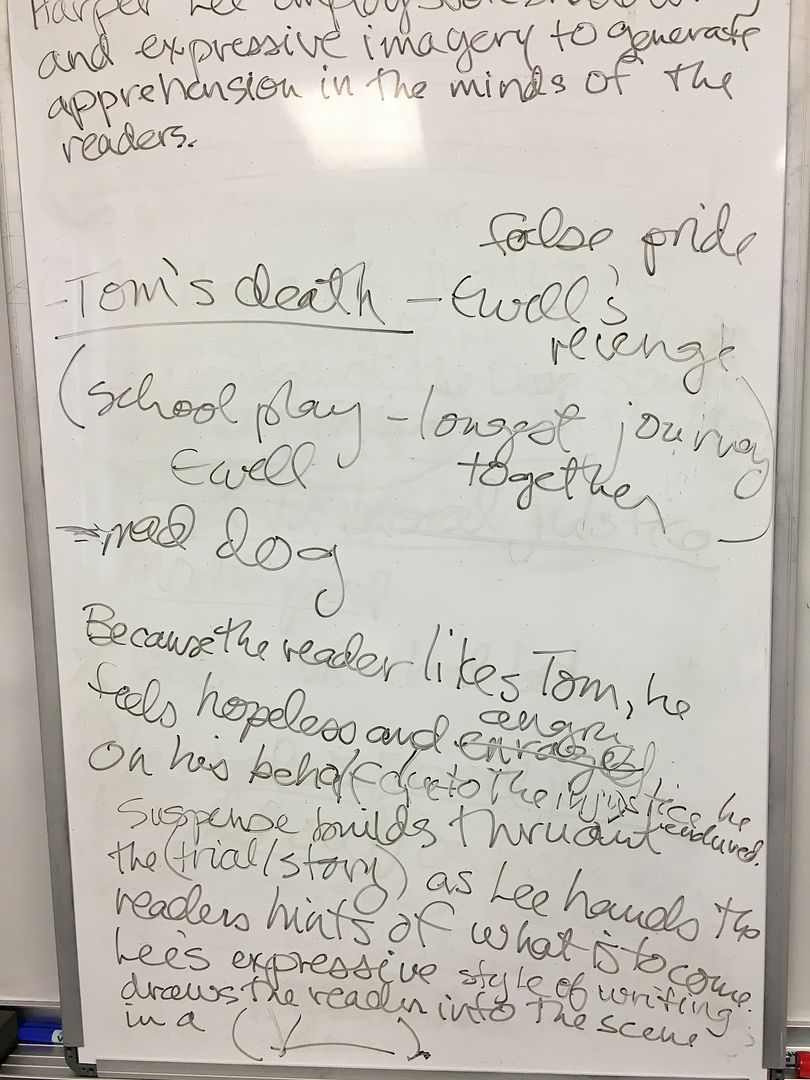 Harper Lee employs foreshadowing
and expressive imagery to generate
apprehension in the minds of the
readers.
false pride
-Tom's death - Ewell's
revenge
(school play - longest journey
Ewell together)
mad dog
Because the reader likes Tom, he
feels hopeless and angry enraged
on his behalf due to the injustices he
endured.
Suspense builds thruout
the (trial/story) as Lee hands the
readers hints of what is to come.
Lee's expressive style of writing
draws the reader into the scene
in a ( ).